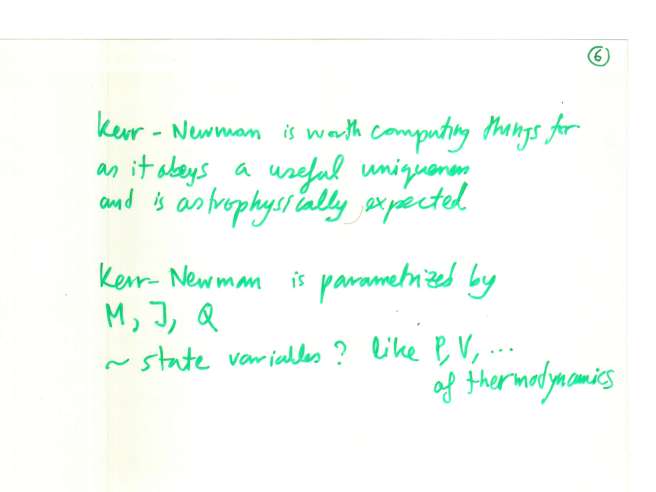 6
Kerr - Newman is worth computing things for
as it obeys a useful uniqueness
and is astrophysically expected
Kerr - Newman is parametrized by
M, J, Q
~ state variables? like P, V, ...
of thermodynamics